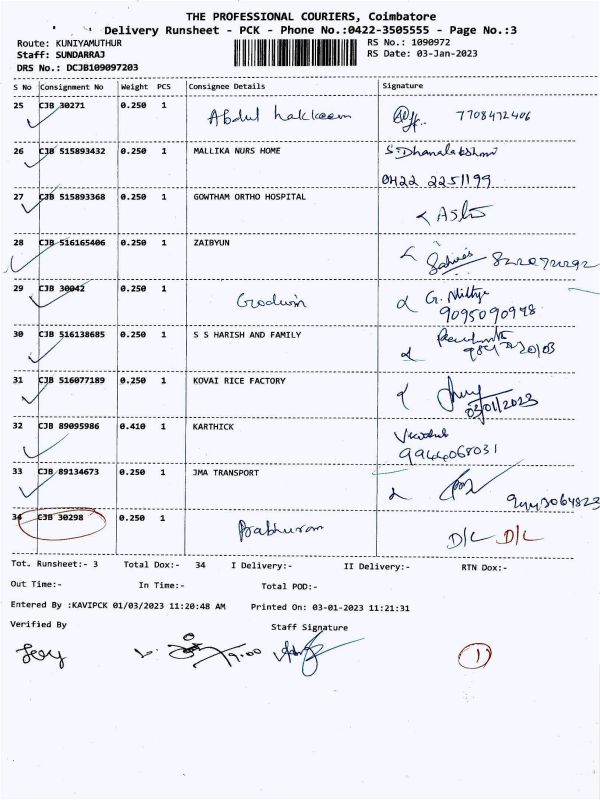 THE PROFESSIONAL COURIERS, Coimbatore
Delivery Runsheet - PCK - Phone No.:0422-3505555 - Page No.:3
Route: KUNIYAMUTHUR RS No.: 1090972
Staff: SUNDARRAJ RS Date: 03-Jan-2023
DRS No.: DCJB109097203
S No Consignment No Weight PCS Consignee Details Signature
25 CJB 30271 0.250 1 Abdul hakkeem 7708472406
26 CJB 515893432 0.250 1 MALLIKA NURS HOME S Dhanalakshmi
0422 2251199
27 CJB 515893368 0.250 1 GOWTHAM ORTHO HOSPITAL
28 CJB 516165406 0.250 1 ZAIBYUN
29 CJB 30042 0.250 1 Godwin G. Nithya
9095090978
30 CJB 516138685 0.250 1 S S HARISH AND FAMILY
31 CJB 516077189 0.250 1 KOVAI RICE FACTORY
03/01/2023
32 CJB 89095986 0.410 1 KARTHICK
9944068031
33 CJB 89134673 0.250 1 JMA TRANSPORT
34 CJB 30298 0.250 1 Prabhuram D/L D/L
Tot. Runsheet:- 3 Total Dox:- 34 I Delivery:- II Delivery:- RTN Dox:-
Out Time:- In Time:- Total POD:-
Entered By :KAVIPCK 01/03/2023 11:20:48 AM Printed On: 03-01-2023 11:21:31
Verified By Staff Signature
19.00 1